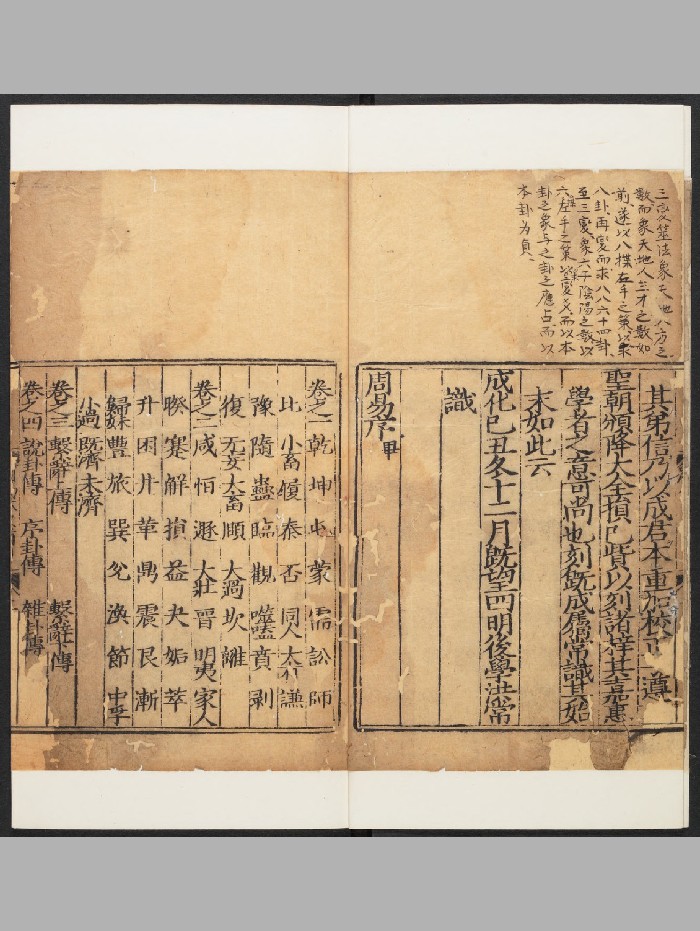 筮法象天地八方之
數而象天地人三才之數如
前遂以八揲左手之策以象
八卦再變而求八八六十四卦
至三變象六子陰陽之數以
六揲左手之策以變爻而以本
卦之象与之卦之應占而以
本卦为貞
其弟信乃以成君本重加挍正一遵
聖朝頒降大全損己貲以刻諸梓其至嘉惠
學者之意可尚也刻既成常識其始
末如此云
成化己丑冬十二月既望四明後學洪常
識
周易序 甲
卷之一 乾 坤 屯 蒙 需 訟 師
比 小畜 履 泰 否 同人 大有 謙
豫 隨 蠱 臨 觀 噬嗑 賁 剥
復 无妄 大畜 頤 大過 坎 離
卷之二 咸 恒 遯 大壯 晉 明夷 家人
睽 蹇 解 損 益 夬 姤 萃
升 困 井 革 鼎 震 艮 漸
歸妹 豐 旅 巽 兌 渙 節 中孚
小過 既濟 未濟
卷之三 繫辭上傳 繫辭下傳
卷之四 說卦傳 序卦傳 雜卦傳